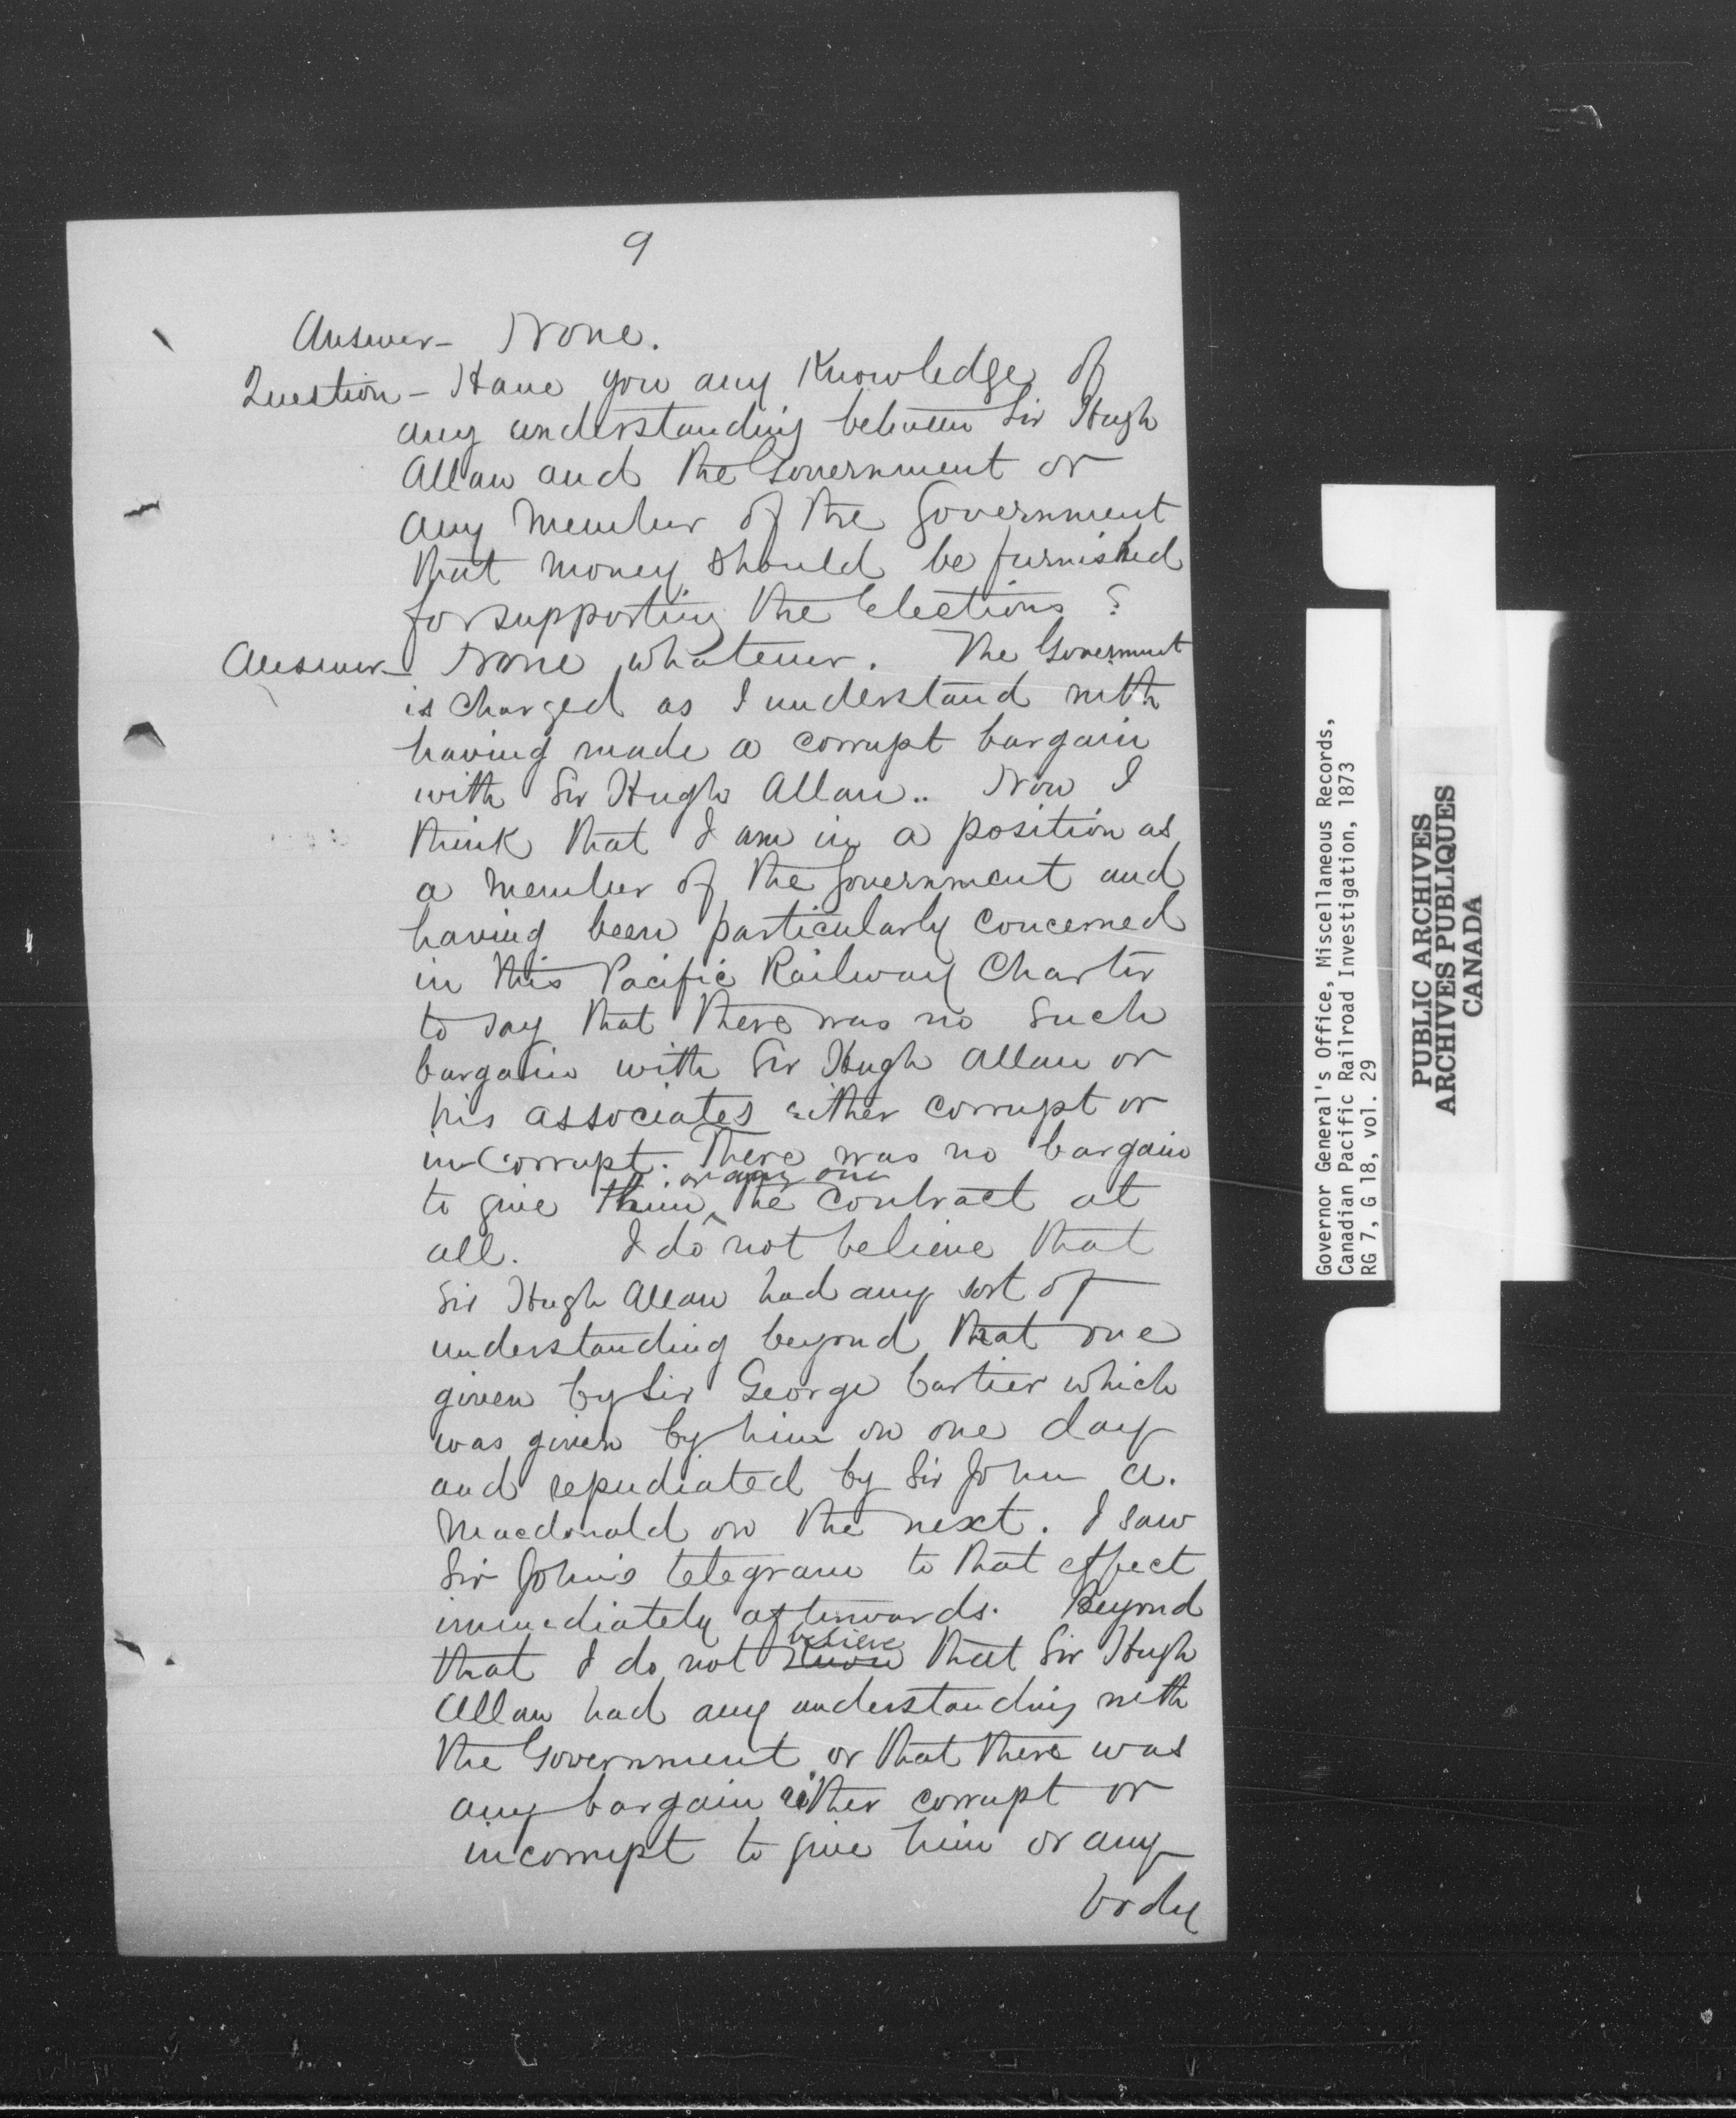 9
Answer - None.
Question - Have you any Knowledge of
any understanding between Sir Hugh
Allan and the Government or
any Member of the Government
that money should be furnished
for supporting the Elections ?
Answer - None whatever. The Government
is charged as I understand with
having made a corrupt bargain
with Sir Hugh Allan.. Now I
think that I am in a position as
a member of the Government and
having been particularly concerned
in this Pacific Railway Charter
to say that there was no such
bargain with Sir Hugh Allan or
his associates either corrupt or
incorrupt. There was no bargain
or any one
to give them ‸ the contract at
all. I do not believe that
Sir Hugh Allan had any sort of
understanding beyond that one
given by Sir George Cartier which
was given by him on one day
and repudiated by Sir John A.
Macdonald on the next. I saw
Sir John's telegram to that effect
immediately afterwards. Beyond
believe
that I do not know that Sir Hugh
Allan had any understanding with
the Government or that there was
any bargain either corrupt or
incorrupt to give him or any
body
Governor General's Office, Miscellaneous Records,
Canadian Pacific Railroad Investigation, 1873
RG 7, G 18, vol. 29
PUBLIC ARCHIVES
ARCHIVES PUBLIQUES
CANADA